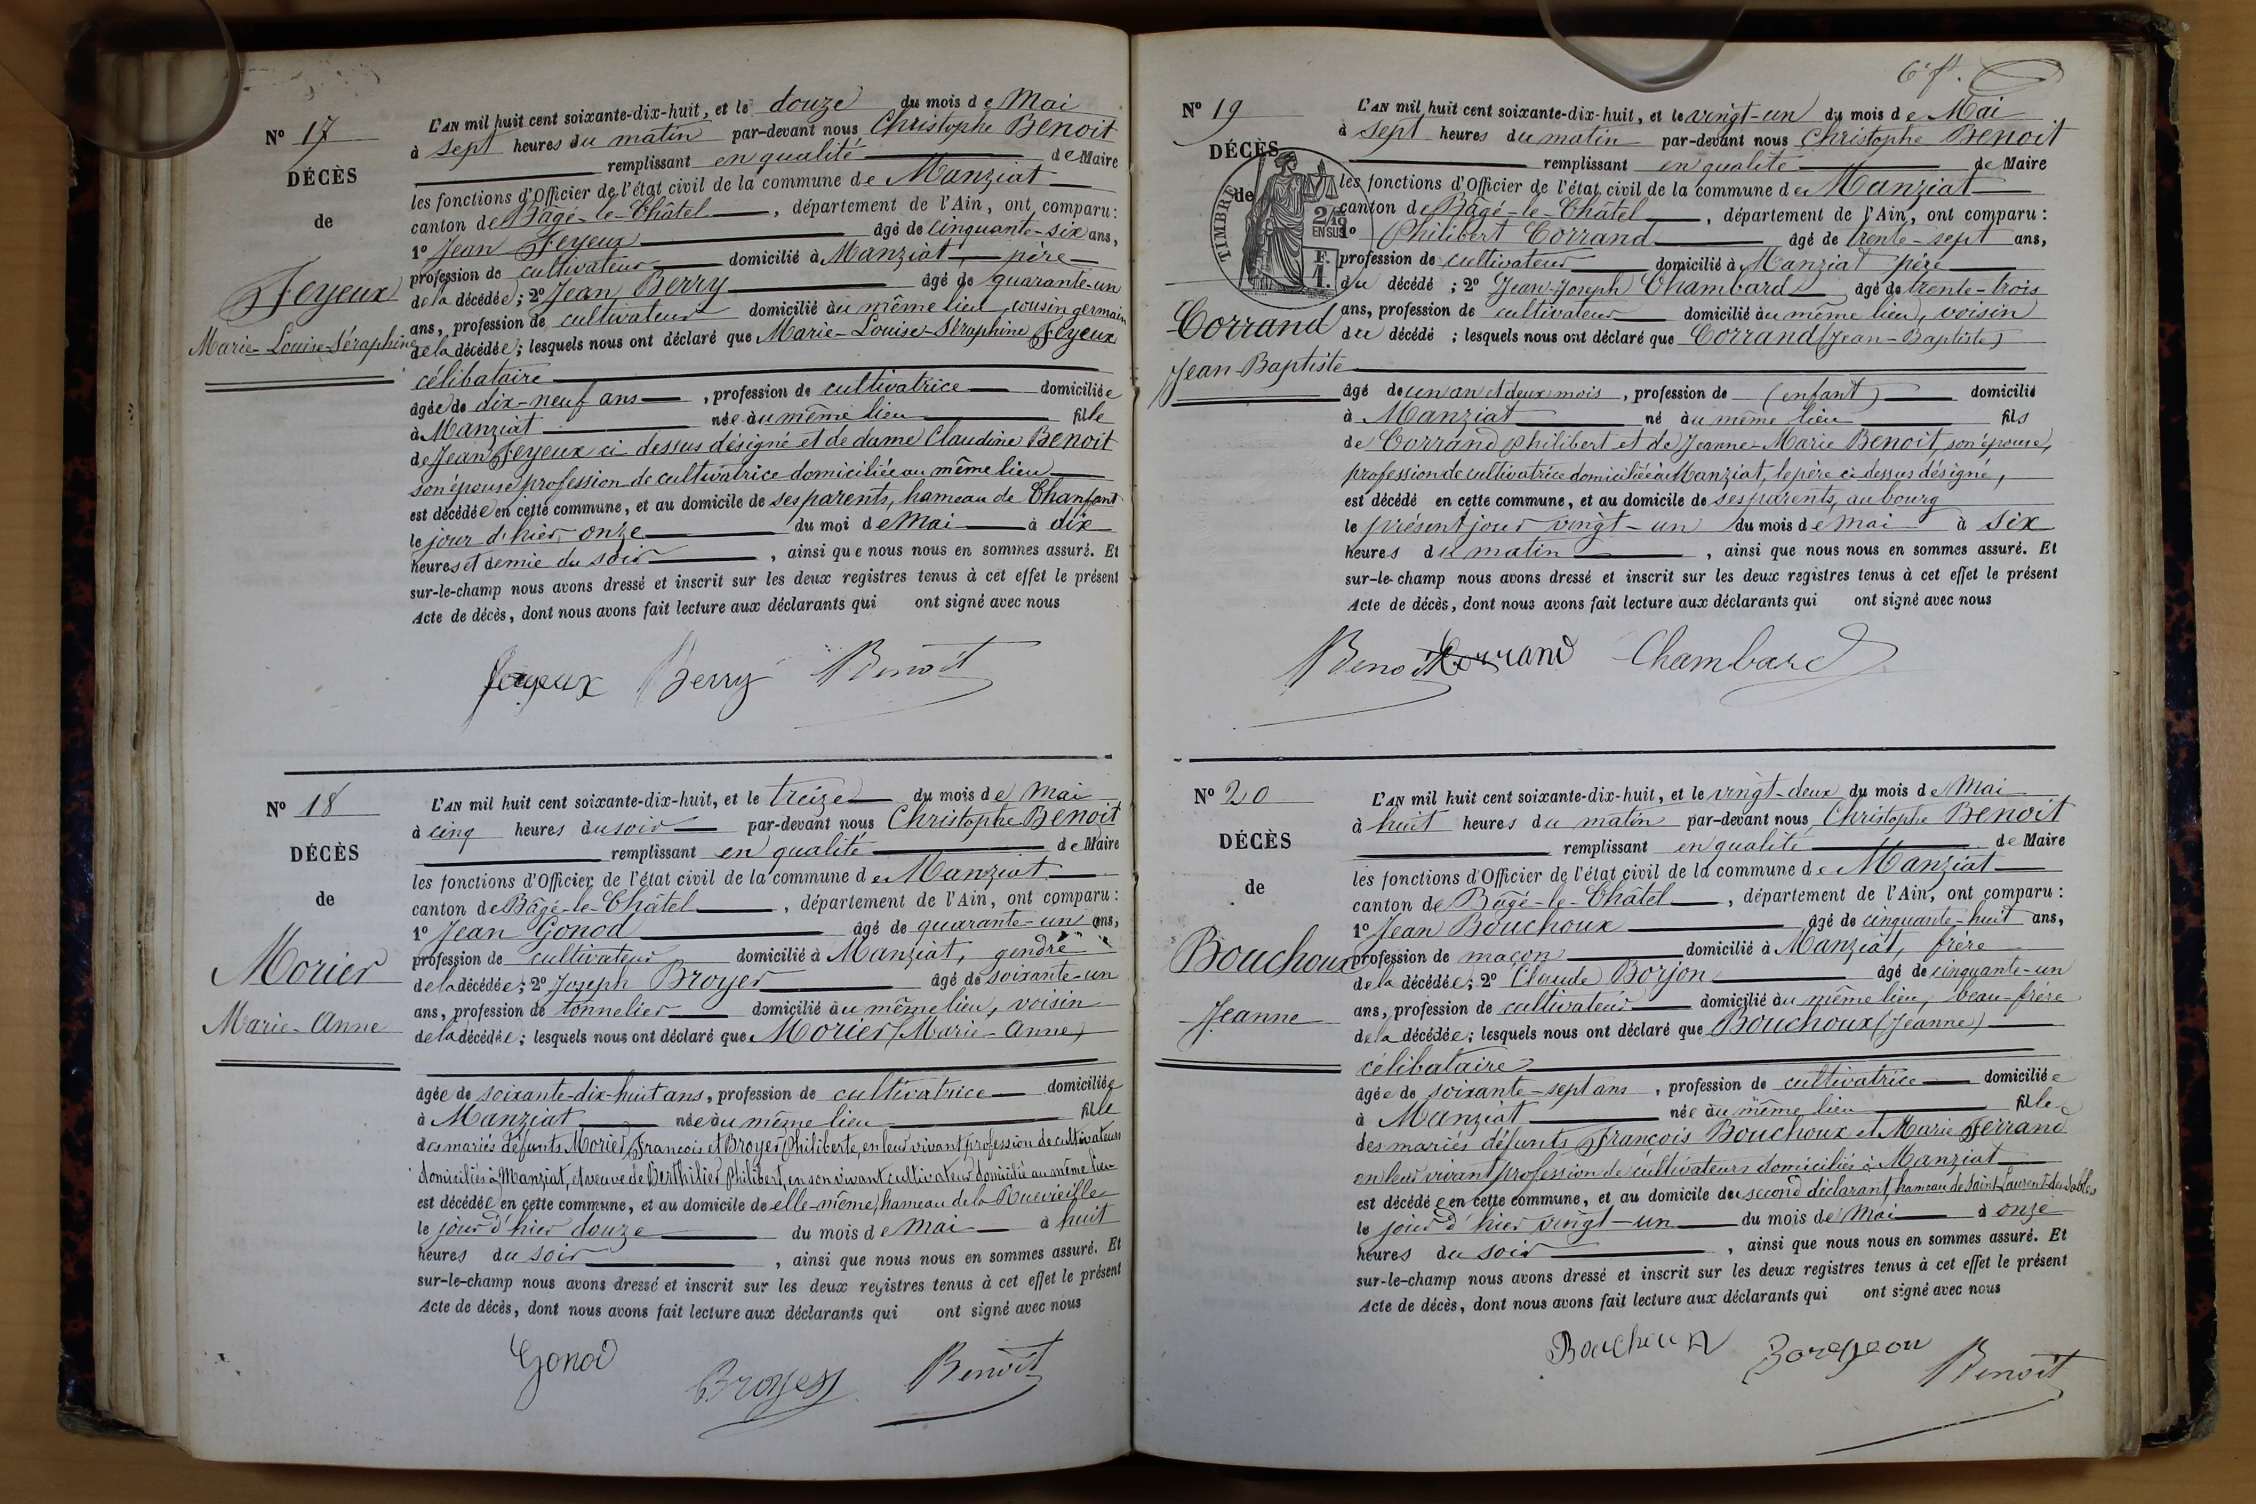 N° 17
DÉCÈS
de
Feyeux
Marie-Louise-Séraphine
L'AN mil huit cent soixante-dix-huit, et le douze du mois de Mai
à sept heures du matin par-devant nous Christophe Benoit
remplissant en qualité de Maire
les fonctions d'Officier de l'état civil de la commune de Manziat
canton de Bâgé-le-Châtel, département de l'Ain, ont comparu :
1° Jean Feyeux âgé de cinquante-six ans,
profession de cultivateur domicilié à Manziat père
de la décédée ; 2° Jean Berry âgé de quarante-un
ans, profession de cultivateur domicilié au même lieu, cousin germain
de la décédée ; lesquels nous ont déclaré que Marie-Louise-Séraphine Feyeux
célibataire
âgée de dix-neuf ans, profession de cultivatrice domiciliée
à Manziat née au même lieu fille
de Jean Feyeux ci dessus désigné et de dame Claudine Benoit
son épouse profession de cultivatrice domiciliée au même lieu
est décédée en cette commune, et au domicile de ses parents, hameau de Chanfant
le jour d'hier, onze du moi de Mai à dix
heures et demie du soir, ainsi que nous nous en sommes assuré. Et
sur-le-champ nous avons dressé et inscrit sur les deux registres tenus à cet effet le présent
Acte de décès, dont nous avons fait lecture aux déclarants qui ont signé avec nous
Feyeux Berry Benoit
N° 18
DÉCÈS
de
Morier
Marie-Anne
L'AN mil huit cent soixante-dix-huit, et le treize du mois de Mai
à cinq heures du soir par-devant nous Christophe Benoit
remplissant en qualité de Maire
les fonctions d'Officier de l'état civil de la commune de Manziat
canton de Bâgé-le-Châtel, département de l'Ain, ont comparu :
1° Jean Gonod âgé de quarante-un ans,
profession de cultivateur domicilié à Manziat, gendre
de la décédée ; 2° Joseph Broyer âgé de soixante-un
ans, profession de tonnelier domicilié au même lieu, voisin
de la décédée ; lesquels nous ont déclaré que Morier (Marie-Anne)
âgée de soixante-dix-huit ans, profession de cultivatrice domiciliée
à Manziat née au même lieu fille
des mariés défunts Morier François et Broyer Philiberte, en leur vivant profession de cultivateurs
domiciliés à Manziat, et veuve de Berthilier Philibert, en son vivant cultivateur domicilié au même lieu
est décédée en cette commune, et au domicile de elle-même, hameau de la Ruevieille
le jour d'hier douze du mois de Mai à huit
heures du soir, ainsi que nous nous en sommes assuré. Et
sur-le-champ nous avons dressé et inscrit sur les deux registres tenus à cet effet le présent
Acte de décès, dont nous avons fait lecture aux déclarants qui ont signé avec nous
Gonod Broyer Benoit
6e ft.
N° 19
DÉCÈS
de
TIMBRE
2/10
EN SUS
F.
1.
Corrand
Jean-Baptiste
L'AN mil huit cent soixante-dix-huit, et le vingt-un du mois de Mai
à sept heures du matin par-devant nous Christophe Benoit
remplissant en qualité de Maire
les fonctions d'Officier de l'état civil de la commune de Manziat
canton de Bâgé-le-Châtel, département de l'Ain, ont comparu :
1° Philibert Corrand âgé de trente-sept ans,
profession de cultivateur domicilié à Manziat père
du décédé ; 2° Jean-Joseph Chambard âgé de trente-trois
ans, profession de cultivateur domicilié au même lieu, voisin
du décédé ; lesquels nous ont déclaré que Corrand (Jean-Baptiste)
âgé de un an et deux mois, profession de (enfant) domicilié
à Manziat né au même lieu fils
de Corrand Philibert et de Jeanne-Marie Benoit, son épouse,
profession de cultivatrice domiciliée à Manziat, le père ci-dessus désigné,
est décédé en cette commune, et au domicile de ses parents, au bourg
le présent jour vingt-un du mois de Mai à six
heures du matin, ainsi que nous nous en sommes assuré. Et
sur-le-champ nous avons dressé et inscrit sur les deux registres tenus à cet effet le présent
Acte de décès, dont nous avons fait lecture aux déclarants qui ont signé avec nous
Benoit Corrand Chambard
N° 20
DÉCÈS
de
Bouchoux
Jeanne
L'AN mil huit cent soixante-dix-huit, et le vingt-deux du mois de Mai
à huit heures du matin par-devant nous Christophe Benoit
remplissant en qualité de Maire
les fonctions d'Officier de l'état civil de la commune de Manziat
canton de Bâgé-le-Châtel, département de l'Ain, ont comparu :
1° Jean Bouchoux âgé de cinquante-huit ans,
profession de maçon domicilié à Manziat, frère
de la décédée ; 2° Claude Borjon âgé de cinquante-un
ans, profession de cultivateur domicilié au même lieu, beau-frère
de la décédée ; lesquels nous ont déclaré que Bouchoux (Jeanne)
célibataire
âgée de soixante-sept ans, profession de cultivatrice domiciliée
à Manziat née au même lieu fille
des mariés défunts François Bouchoux et Marie Ferrand
en leur vivant profession de cultivateurs domiciliés à Manziat
est décédée en cette commune, et au domicile du second déclarant, hameau de Saint Laurent-des-Sables
le jour d'hier vingt-un du mois de Mai à onze
heures du soir, ainsi que nous nous en sommes assuré. Et
sur-le-champ nous avons dressé et inscrit sur les deux registres tenus à cet effet le présent
Acte de décès, dont nous avons fait lecture aux déclarants qui ont signé avec nous
Bouchoux Borjon Benoit